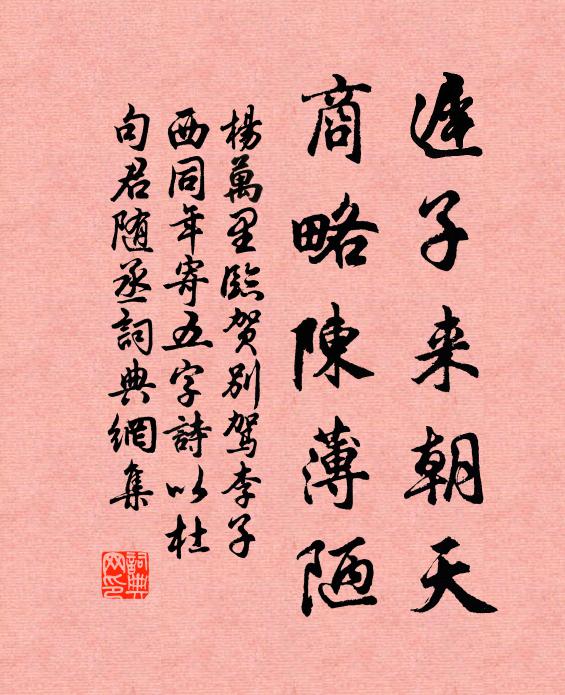 遲子来朝天
商略陳薄陋
楊萬里臨賀别駕李子
西同年寄五字詩以杜
句君随丞詞典網集
詞典网印